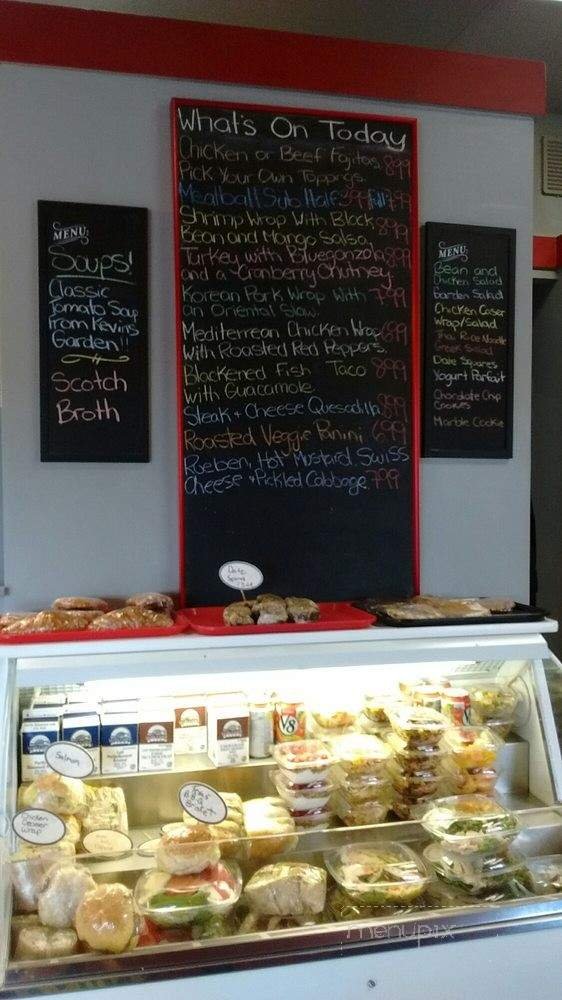 What's On Today
Chicken or Beef Fajitas 8.99
Pick Your Own Toppings.
Meatball Sub Half 3.99 Full 7.99
Shrimp Wrap With Black 8.99
Bean and Mango Salsa.
Turkey with Bluegonzola 8.99
and a Cranberry Chutney.
Korean Pork Wrap With 7.99
an Oriental Slaw.
Mediterrean Chicken Wrap 6.99
With Roasted Red Peppers.
Blackened Fish Taco 8.99
with Guacamole
Steak + Cheese Quesadilla 8.99
Roasted Veggie Panini 6.99
Rueben, Hot Mustard, Swiss
Cheese + Pickled Cabbage 7.99
MENU:
Soups!
Classic
Tomato Soup
From Kevins
Garden!!
Scotch
Broth
MENU:
Bean and
Chicken Salad
Garden Salad
Chicken Caser
Wrap/Salad
Thai Rice Noodle
Greek Salad
Date Squares
Yogurt Parfait
Chocolate Chip
Cookies
Marble Cookie
Date
V8
Salmon
Chicken
Caesar
Wrap
menupix